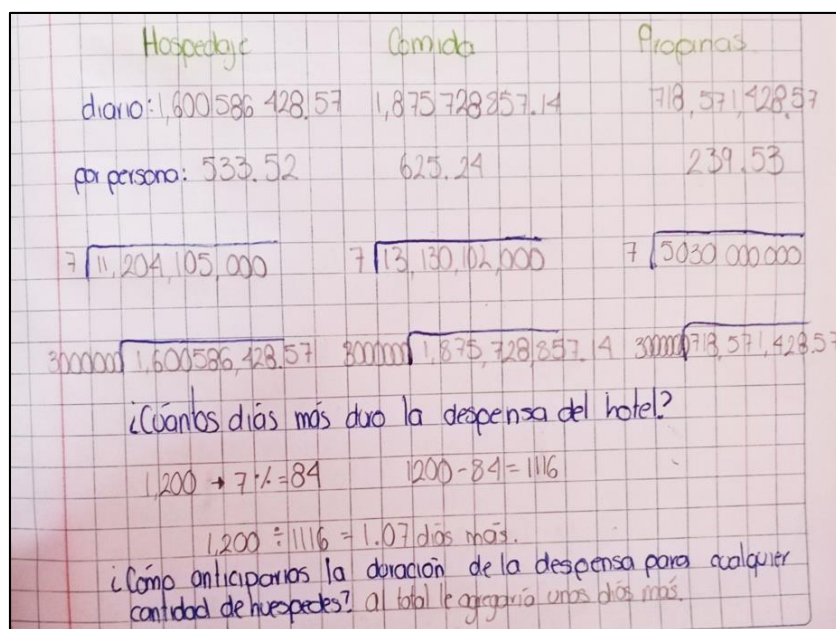 Hospedaje Comida Propinas
diario: 1,600586 428.57 1,875 728 857.14 718,571,428.57
por persona: 533.52 625.24 239.53
7 11,204,105,000 7 13,130,102,000 7 5030 000 000
3000000 1,600586,428.57 3000000 1,875,728,857.14 3000000 718,571,428.57
¿Cuántos días más duo la despensa del hotel?
1,200 → 7% = 84 1200-84=1116
1,200 ÷ 1116 = 1.07 días más.
¿Cómo anticiparias la duración de la despensa para cualquier
cantidad de huespedes? al total le agregaría unos días más.